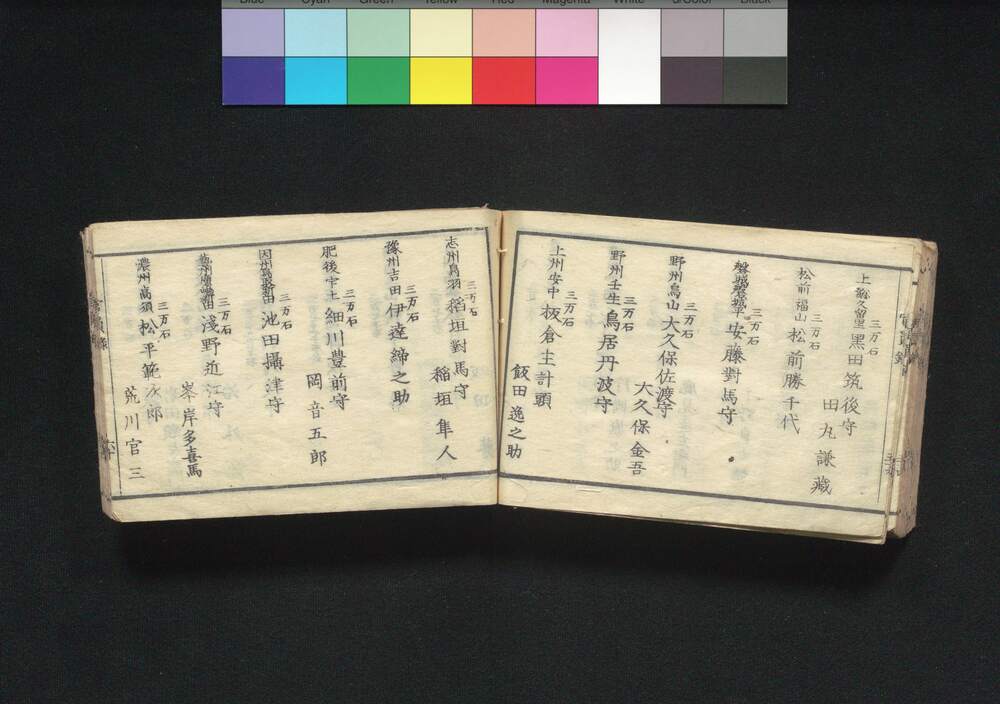 Blue Cyan Green Yellow Red Magenta White 3/Color Black
三万石
上総久留里 黒田筑後守
田丸謙藏
三万石
松前福山 松前勝千代
三万石
安藤對馬守
三万石
野州烏山 大久保佐渡守
大久保金吾
三万石
野州壬生 鳥居丹波守
三万石
上州安中 板倉主計頭
飯田逸之助
三万石
志州鳥羽 稲垣對馬守
稲垣隼人
三万石
豫州吉田 伊達締之助
三万石
肥後宇土 細川豊前守
岡音五郎
三万石
池田攝津守
三万石
浅野近江守
岸多喜馬
三万石
濃州高須 松平範次郎
荒川官三